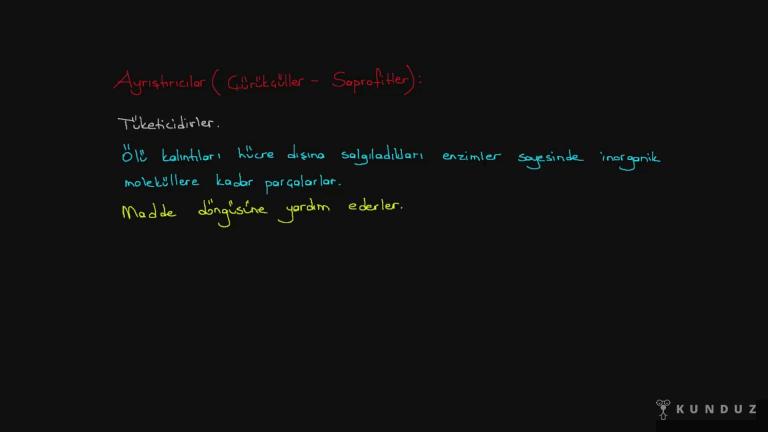 Ayrıştırıcılar ( Çürükçüller - Saprofitler) :
Tüketicidirler.
Ölü kalıntıları hücre dışına salgıladıkları enzimler sayesinde inorganik
moleküllere kadar parçalarlar.
Madde döngüsüne yardım ederler.
KUNDUZ